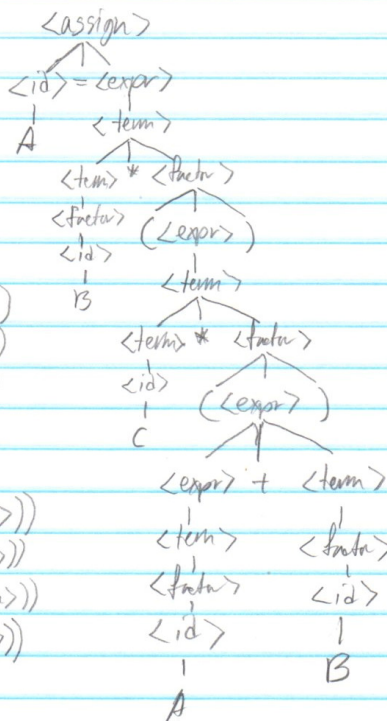 <assign>
<id> = <expr>
A <term>
<term> * <factor>
<factor> (<expr>)
<id> <term>
B
)
) <term> * <factor>
<id> (<expr>)
C
<expr> + <term>
>))
<term> <factor>
>))
<factor> <id>
>))
<id> B
>))
A